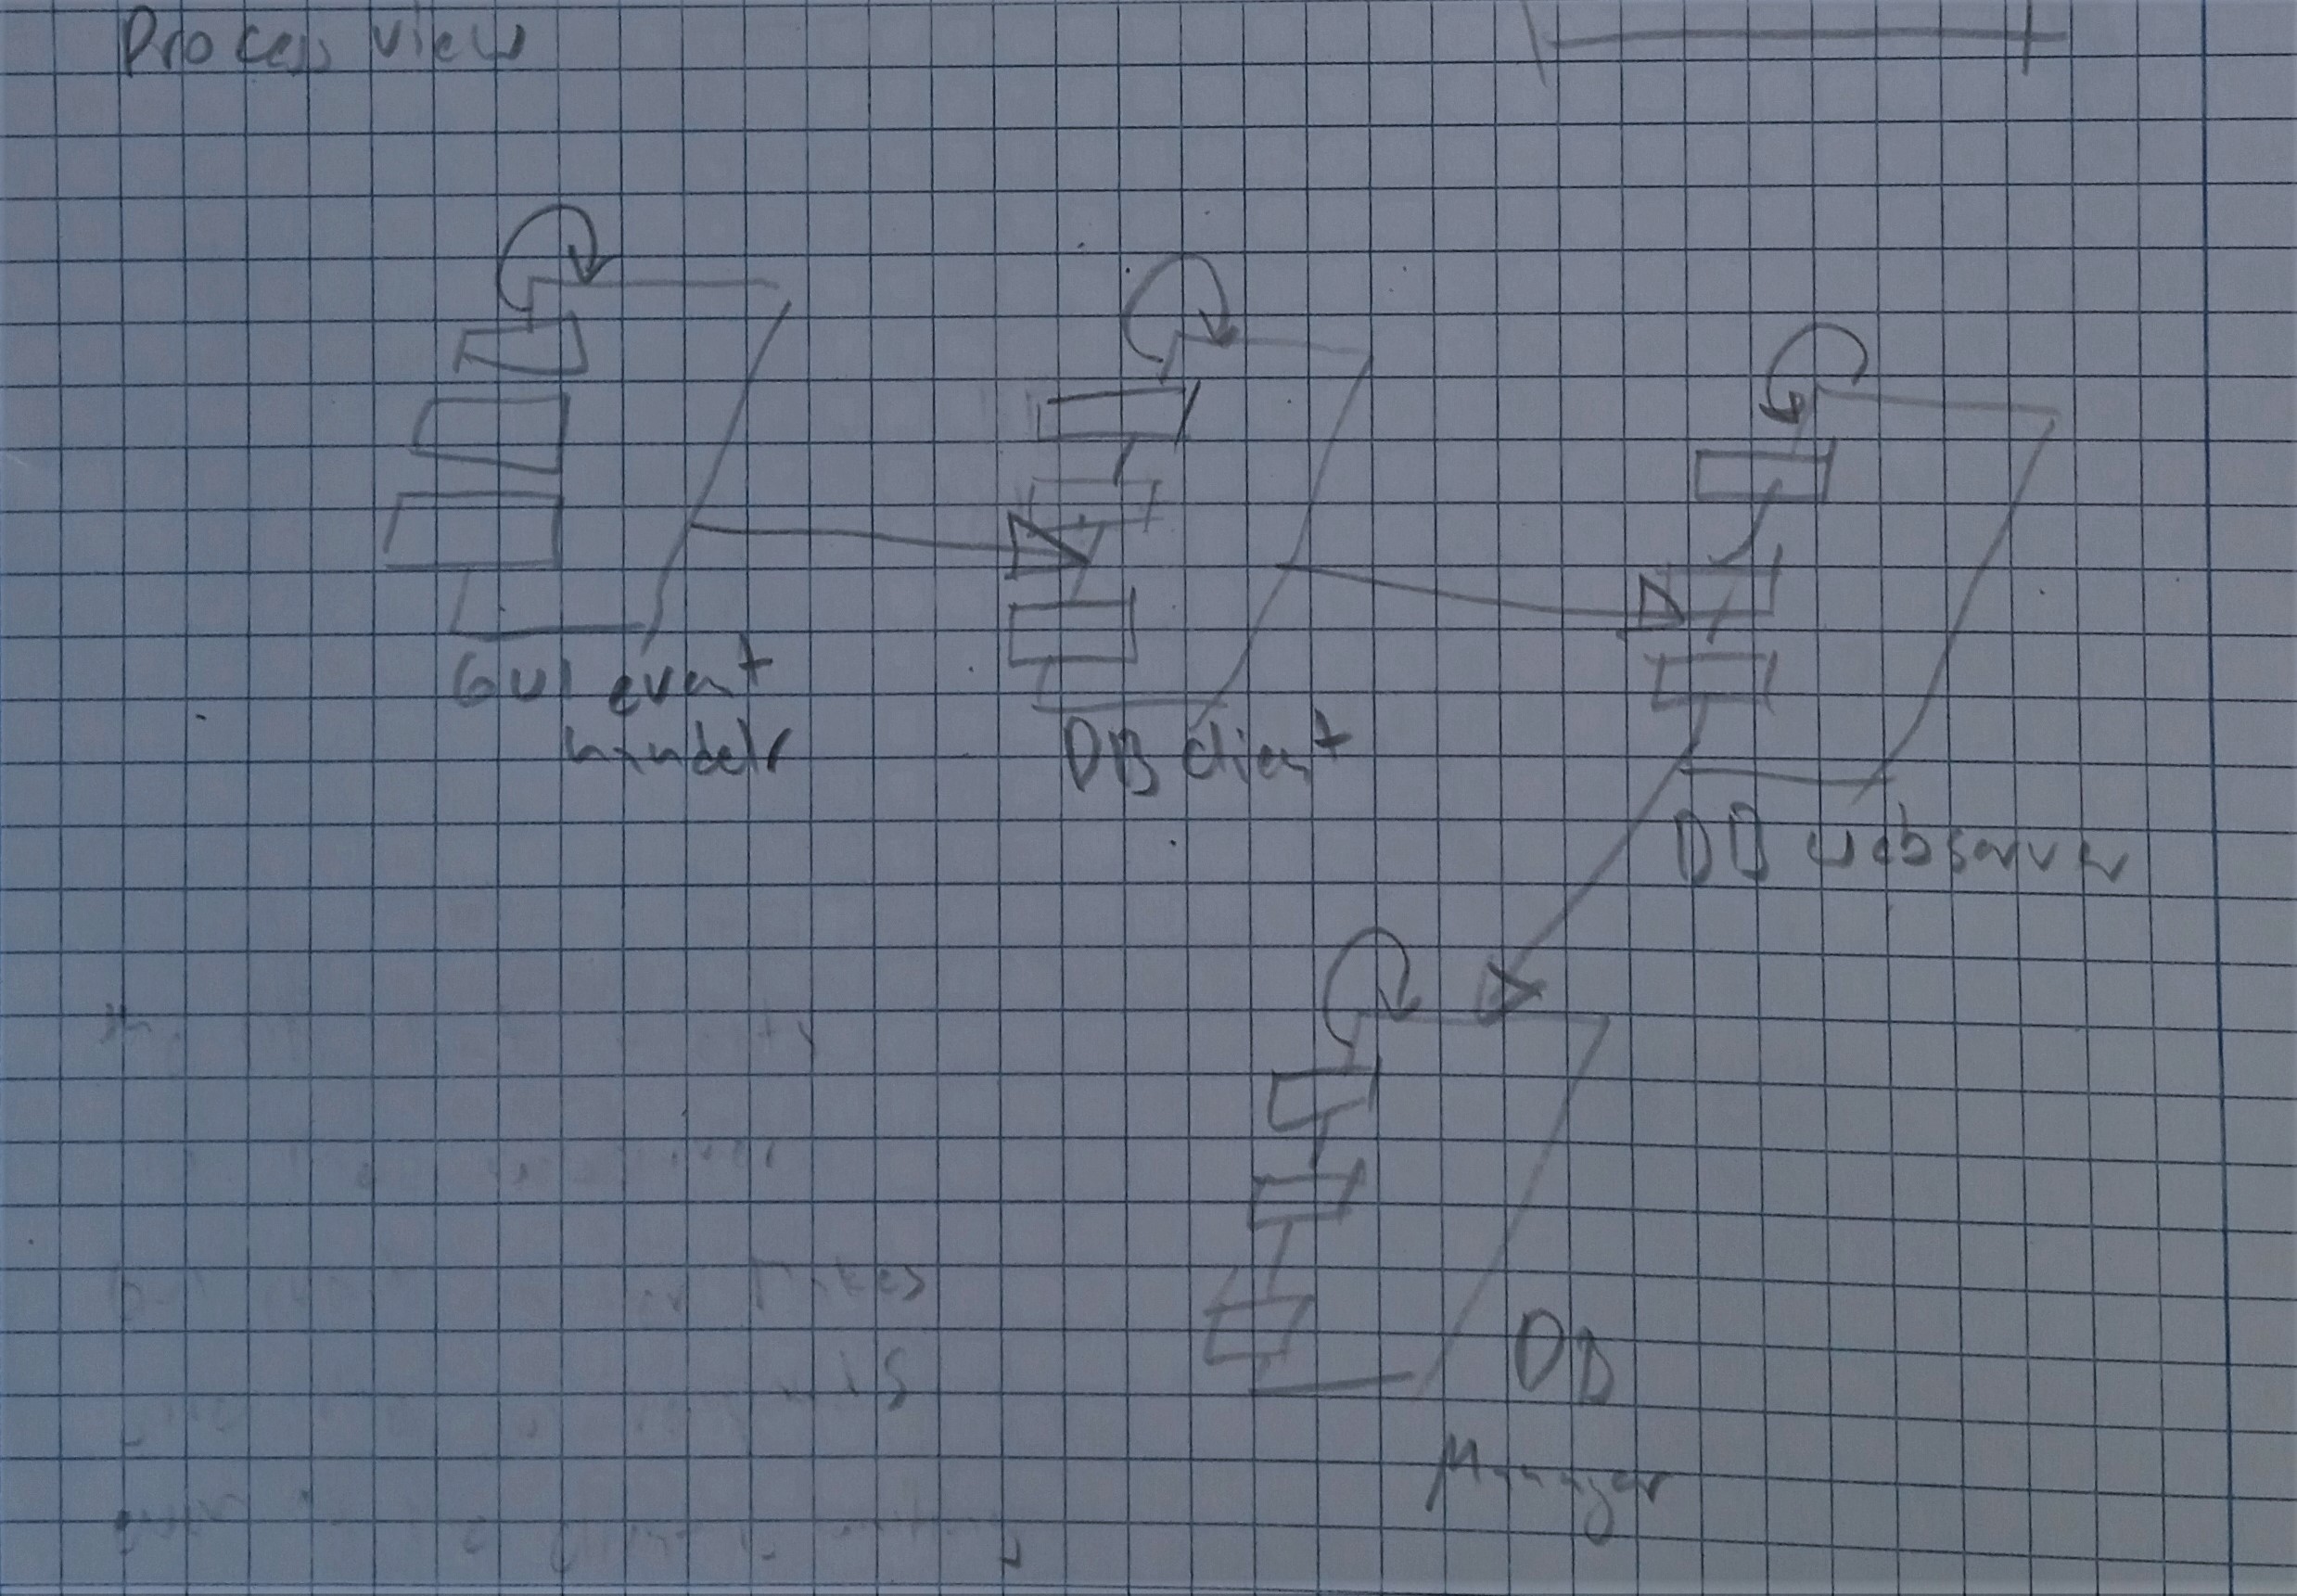 Process view
GUI event
handelr
DB client
DB webserver
DB
Manager